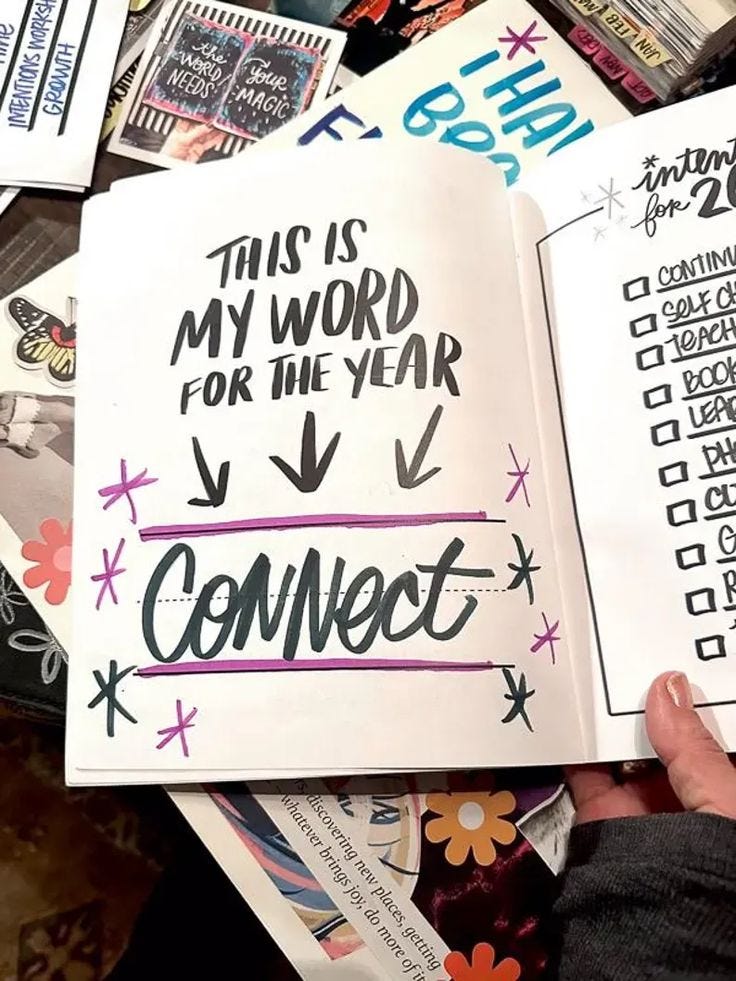 INTENTIONS WORKSHO
GROWTH
the
WORLD
NEEDS
Your
MAGIC
I HA
BE
JAN/FEB
THIS IS
MY WORD
FOR THE YEAR
CONNect
inten
for 20
CONTINU
SELF CH
TEACH
BOOK
LEA
PH
CU
G
R
discovering new places, getting
whatever brings joy, do more of it